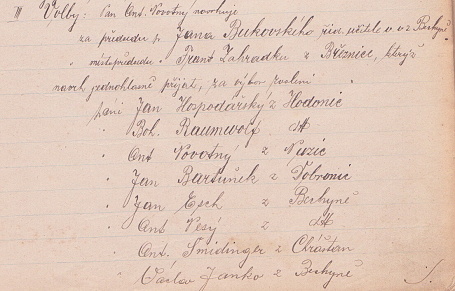 III Volby: Pan Ant Novotný navrhuje
za předsedu p. Jana Bukovského říd. učitele v. v. z Bechyně
" místopředsedu " Frant Zahradku z Březnice, kterýž
návrh jednohlasně přijat, za výbor zvoleni
páni Jan Hospodářský z Hodonic
" Boh. Raumwolf dtt
" Ant Novotný z Nuzic
" Jan Bartuněk z Dobronic
" Jan Esch z Bechyně
" Ant Veselý z dtt
" Ant. Šmidinger z Chrášťan
" Václav Janko z Bechyně